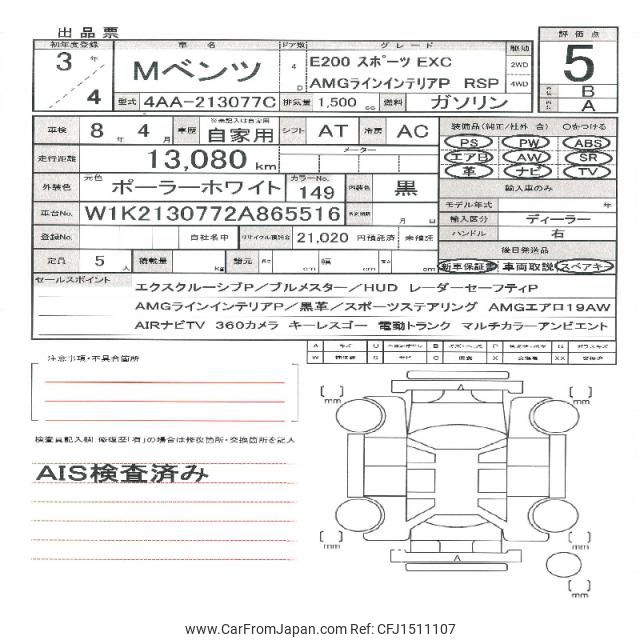 出品票
初年度登録 車名 ドア数 グレード 駆動 評価点
3 年 4 Mベンツ 4 D E200 スポーツ EXC 2WD 5
AMGラインインテリアP RSP 4WD B
型式 4AA-213077C 排気量 1,500 cc 燃料 ガソリン A
車検 8 年 4 月 車歴 ※未記入は自家用 自家用 シフト AT 冷房 AC 装備品(純正/社外 含) ○をつける
PS PW ABS
走行距離 13,080 km メーター エアB AW SR
革 ナビ TV
外装色 元色 ポーラーホワイト カラーNo. 149 内装色 黒 輸入車のみ
モデル年式 年
車台No. W1K2130772A865516 月 日 輸入区分 ディーラー
登録No. 自社名中 リサイクル預託金 21,020 円預託済 未預託 ハンドル 右
後日発送品
定員 5 人 積載量 kg 諸元 長さ cm 幅 cm 高さ cm 新車保証書 車両取説 スペアキー
セールスポイント エクスクルーシブP/ブルメスター/HUD レーダーセーフティP
AMGラインインテリアP/黒革/スポーツステアリング AMGエアロ19AW
AIRナビTV 360カメラ キーレスゴー 電動トランク マルチカラーアンビエント
A キズ U B P N
W S サビ C 腐食 X XX
注意事項・不具合箇所
mm mm
検査員記入欄 修復歴「有」の場合は修復箇所・交換箇所を記入
AIS検査済み
mm mm
mm
CarFromJapan.com Ref: CFJ1511107